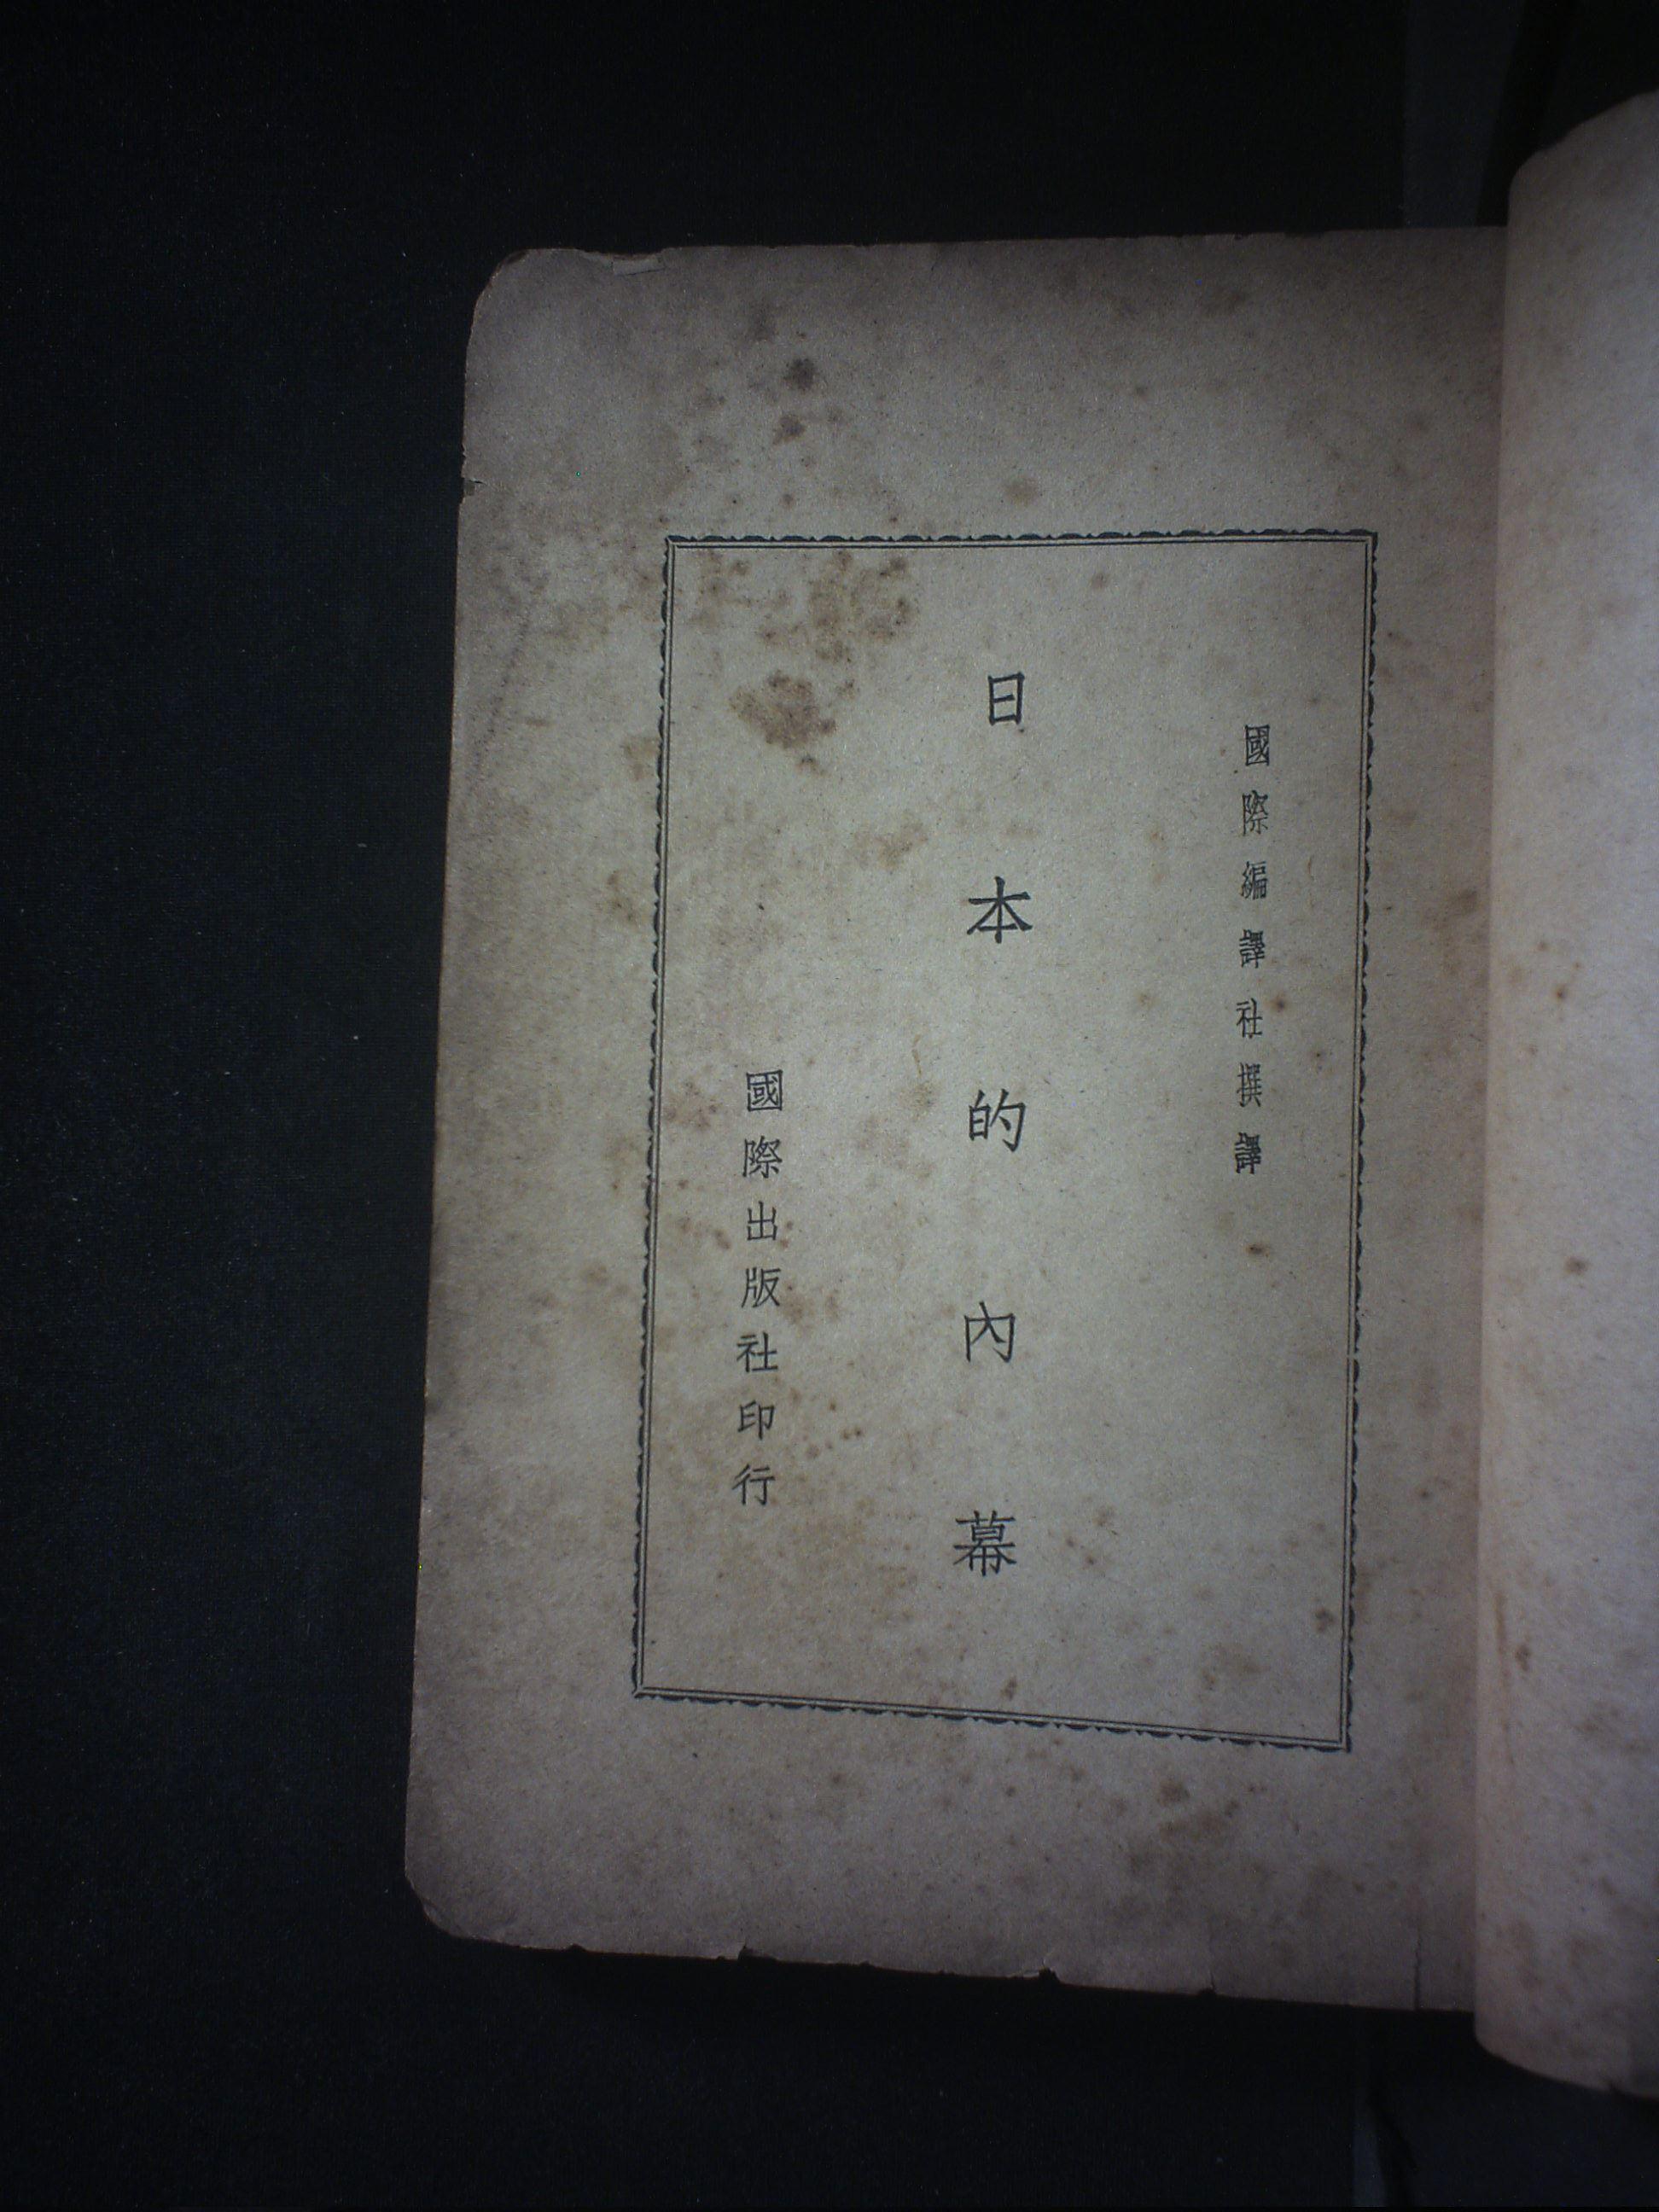 國際編譯社撰譯
日本的內幕
國際出版社印行